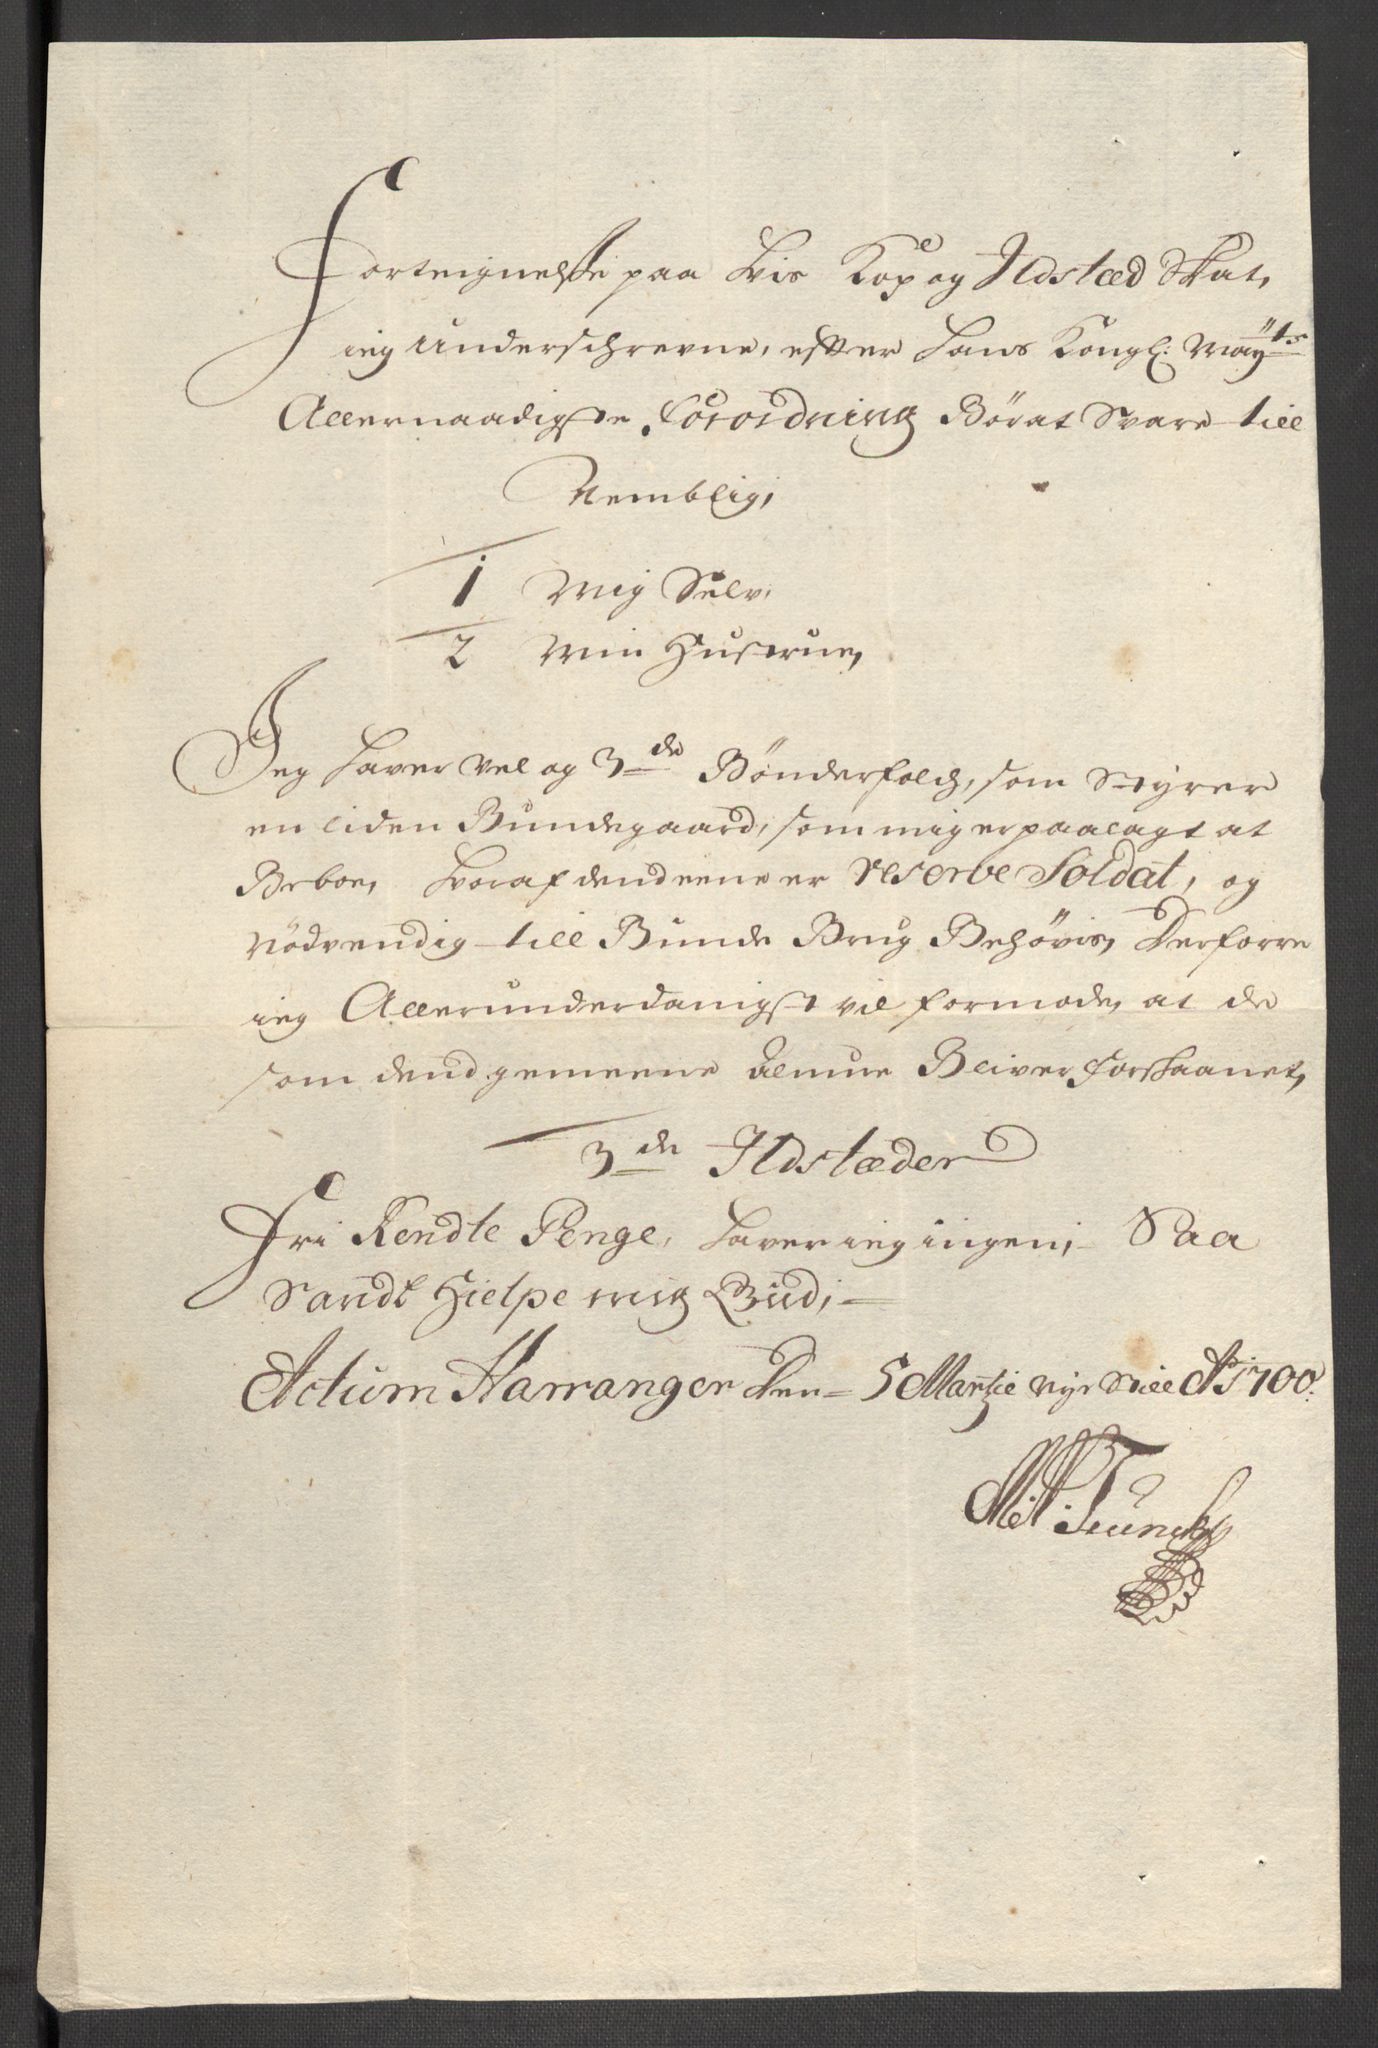 Forteignelse paa hvis Kop og Ildstæd Skat,
ieg underschrevne, effter Hans Kongl: Mayts
Allernaadigste Forordning Bør at Svare till
Nemblig,
1 Mig Selv,
2 Min Hustrue,
Jeg haver vel og 3de Bønderfolch, som Styrer
en liden Bundegaard, som mig er paalagt at
Beboe, hvoraf dend eene er reserve Soldat, og
nödvendig till Bunde Brug Behøvis, Derforre
ieg Allerunderdanigst vil formode, at de
som dend gemeene Almue Bliver forskaanet,
3de Ildstæder
Fri Rendte Penge, haver ieg ingen, Saa
Sandt Hielpe mig Gud,
Actum Harranger den 5 Martzie nye Still Ao 1700.